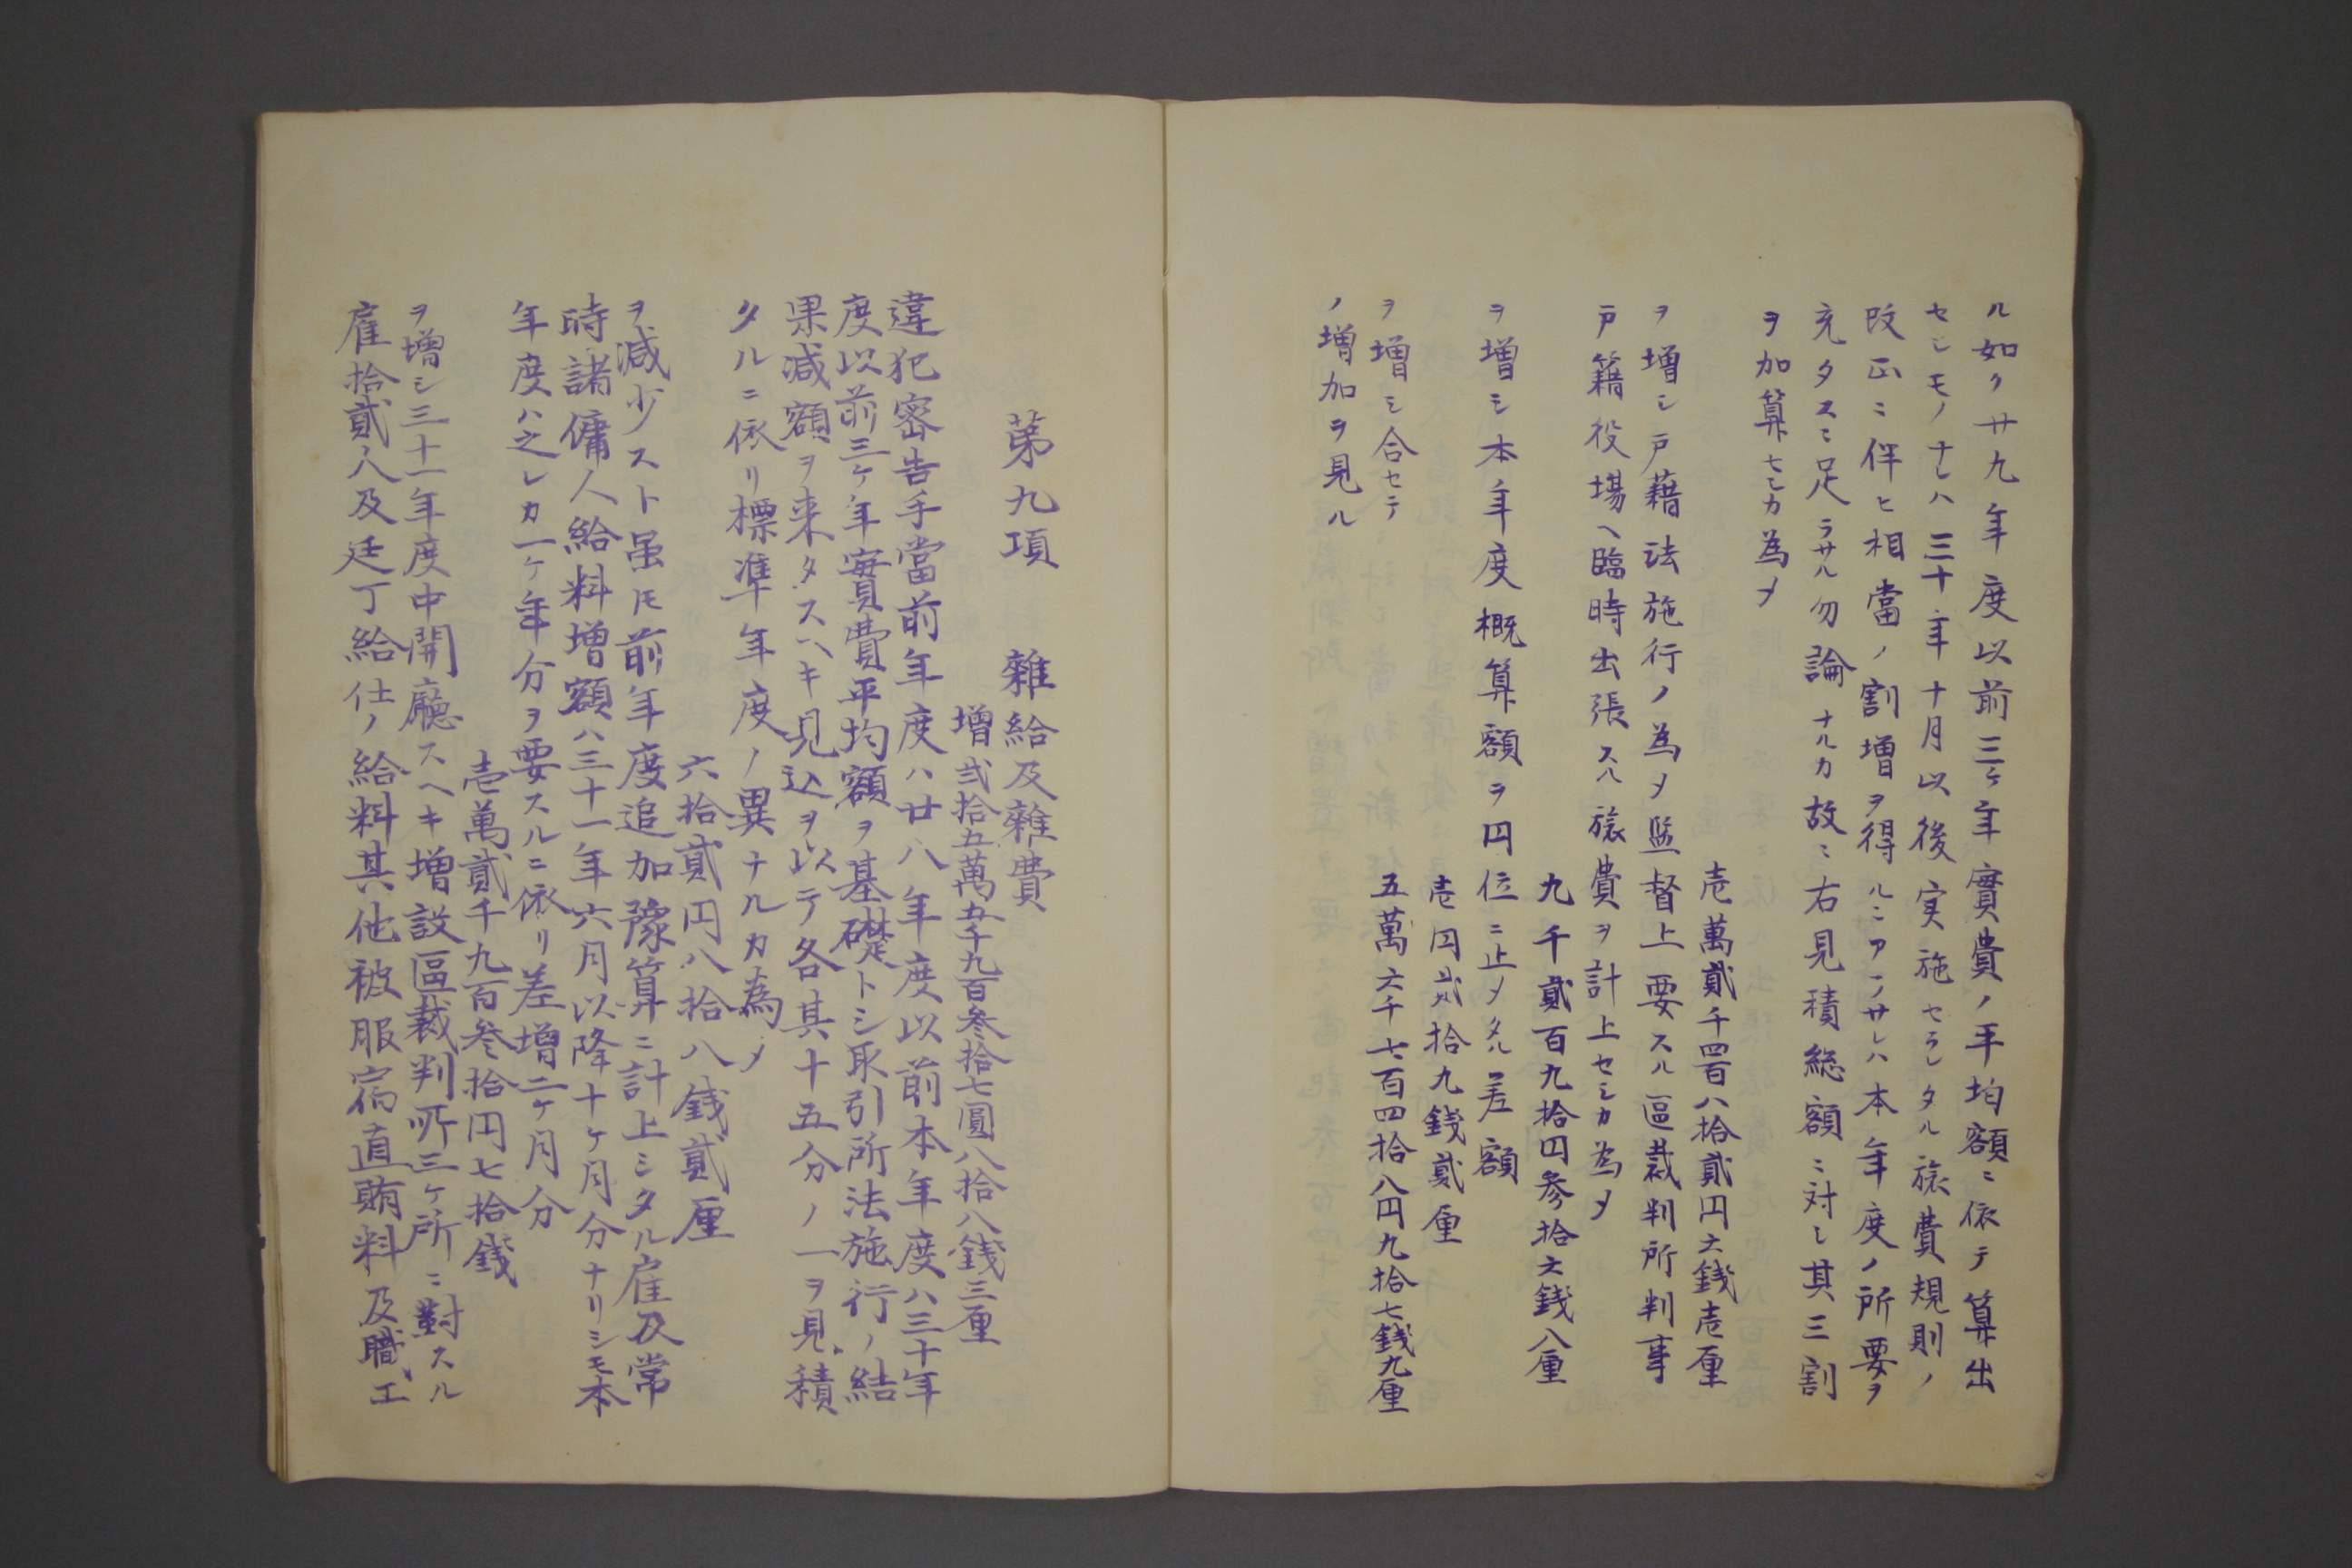 ル如ク廿九年度以前三ケ年實費ノ平均額ニ依テ算出
セシモノナレハ三十年十月以後実施セラレタル旅費規則ノ
改正ニ伴ヒ相當ノ割増ヲ得ルニアラサレハ本年度ノ所要ヲ
充タスニ足ラサル勿論ナルカ故ニ右見積総額ニ対シ其三割
ヲ加算セシカ為メ
壱萬貳千四百八拾貳円六銭壱厘
ヲ増シ戸籍法施行ノ為メ監督上要スル區裁判所判事
戸籍役場ヘ臨時出張スル旅費ヲ計上セシカ為メ
九千貳百九拾四円参拾六銭八厘
ヲ増シ本年度概算額ヲ円位ニ止メタル差額
壱円貳拾九銭貳厘
ヲ増シ合セテ
五萬六千七百四拾八円九拾七銭九厘
ノ増加ヲ見ル
第九項 雜給及雜費
増貳拾五萬五千九百参拾七圓八拾八銭三厘
違犯密告手當前年度ハ廿八年度以前本年度ハ三十年
度以前三ケ年實費平均額ヲ基礎トシ取引所法施行ノ結
果減額ヲ来タスヘキ見込ヲ以テ各其十五分ノ一ヲ見積
タルニ依リ標準年度ノ異ナルカ為メ
六拾貳円八拾八銭貳厘
ヲ減少スト虽モ前年度追加豫算ニ計上シタル雇及常
時諸傭人給料増額ハ三十一年六月以降十ケ月分ナリシモ本
年度ハ之レカ一ケ年分ヲ要スルニ依リ差増二ケ月分
壱萬貳千九百参拾円七拾銭
ヲ増シ三十一年度中開廳スヘキ増設區裁判所三ケ所ニ對スル
雇拾貳人及廷丁給仕ノ給料其他被服宿直賄料及職工